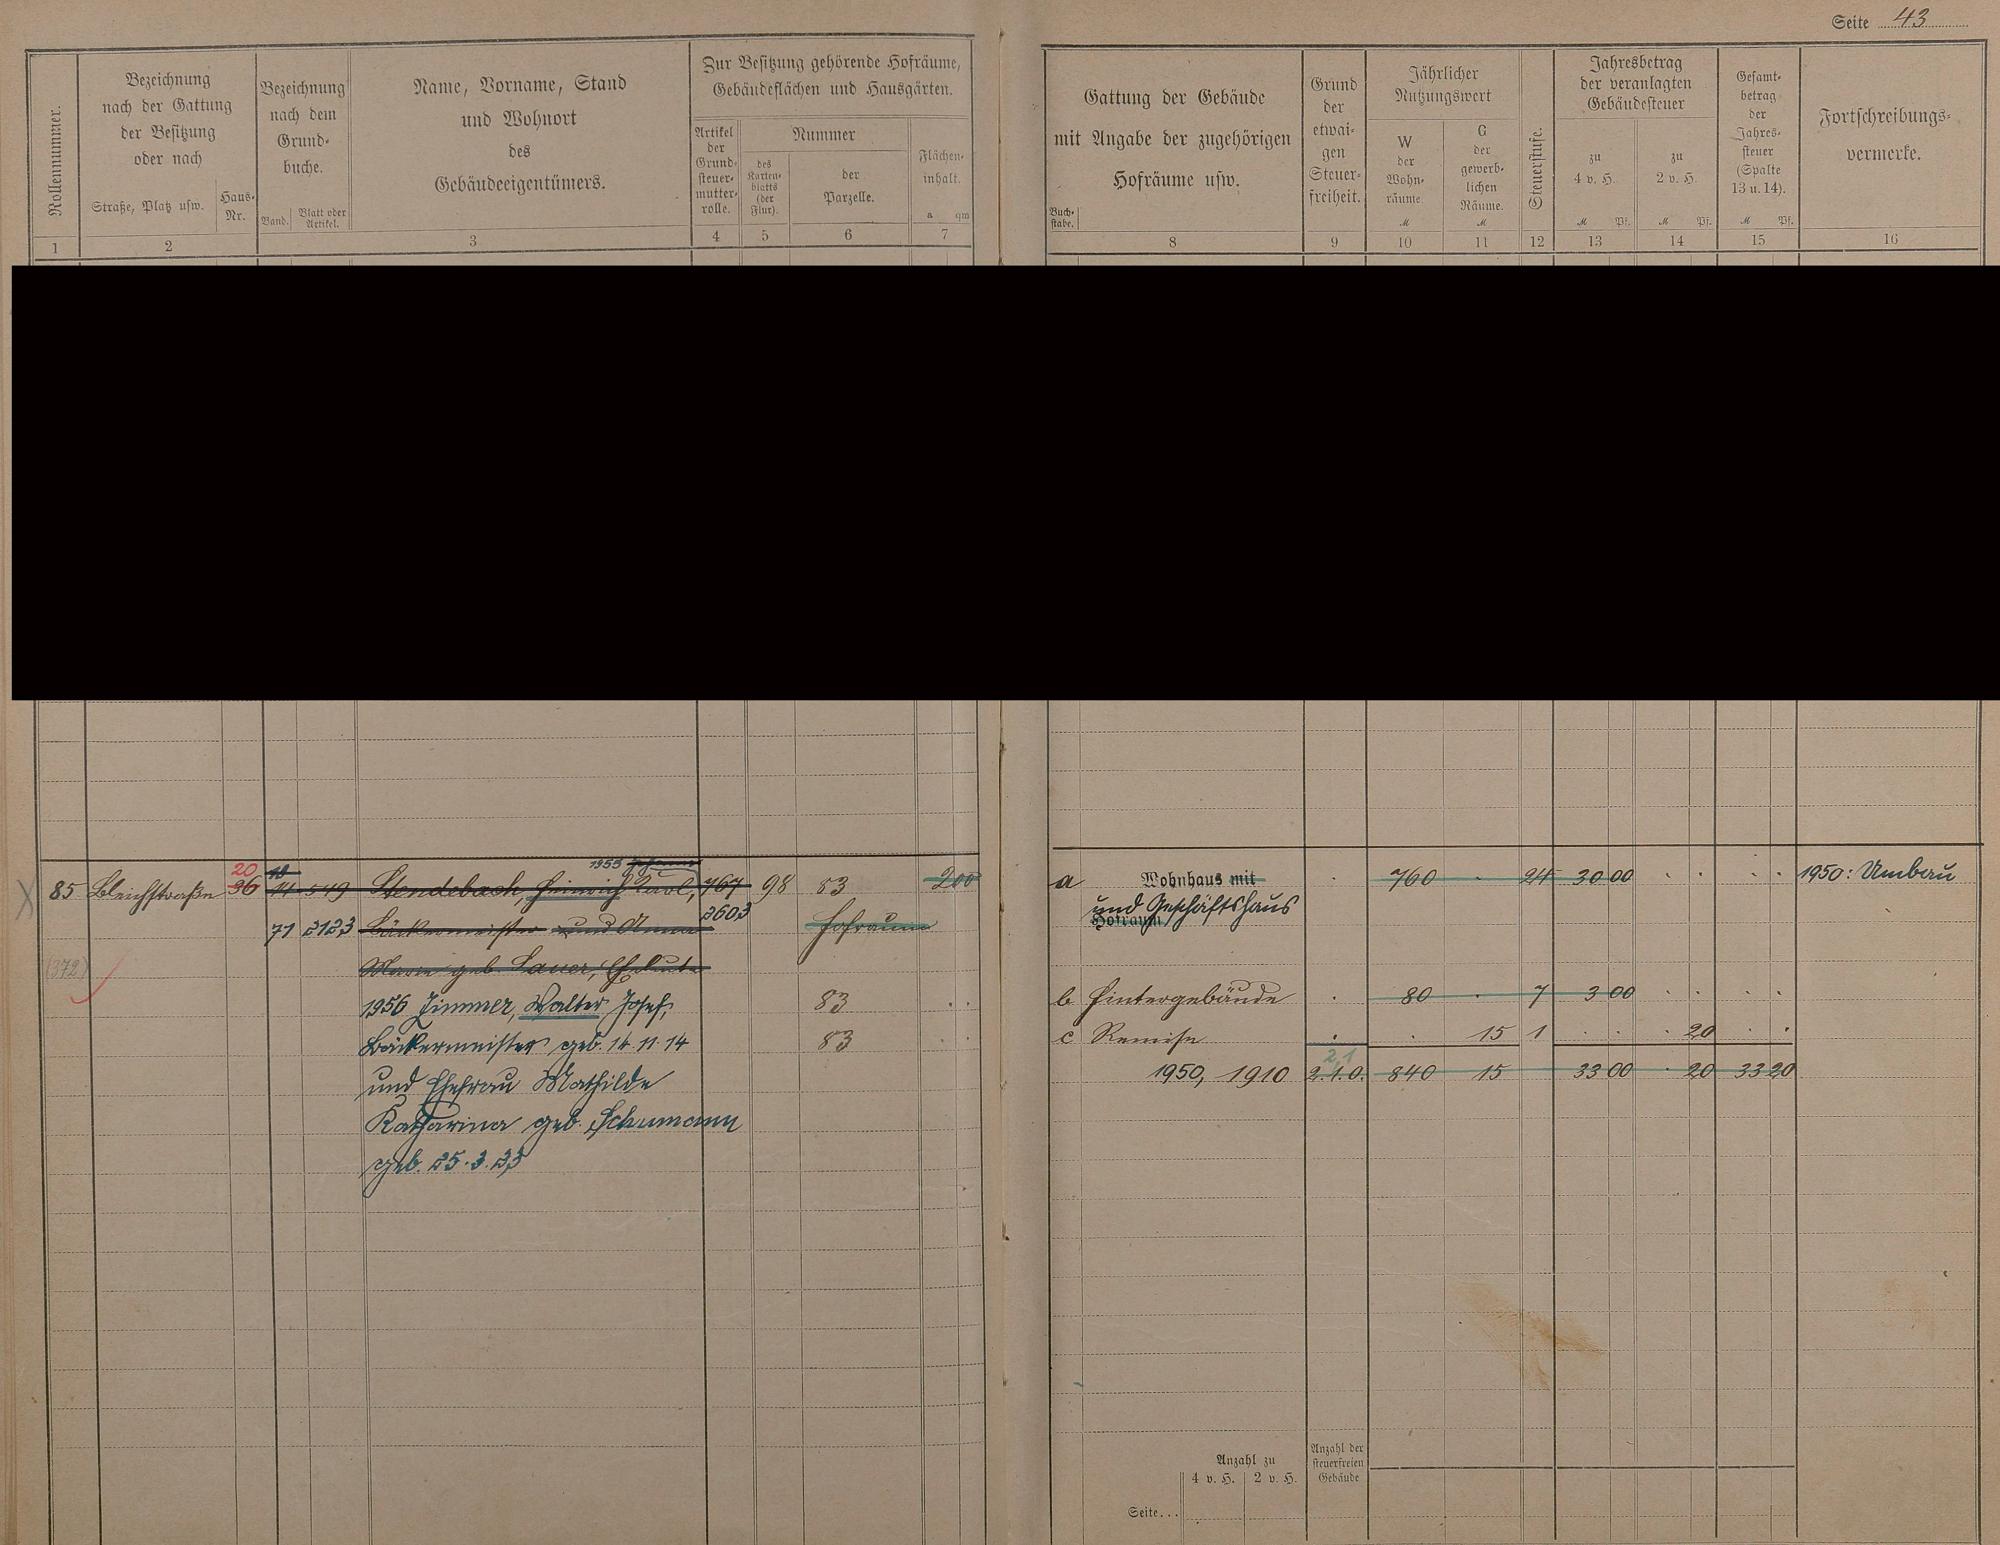 Seite 43
Rollennummer.
Bezeichnung
nach der Gattung
der Besitzung
oder nach
Straße, Platz usw.
Haus-
Nr.
Bezeichnung
nach dem
Grund-
buche.
Band.
Blatt oder
Artikel.
Name, Vorname, Stand
und Wohnort
des
Gebäudeeigentümers.
Zur Besitzung gehörende Hofräume,
Gebäudeflächen und Hausgärten.
Artikel
der
Grund-
steuer-
mutter-
rolle.
Nummer
des
Karten-
blatts
(der
Flur).
der
Parzelle.
Flächen-
inhalt.
a qm
Gattung der Gebäude
mit Angabe der zugehörigen
Hofräume usw.
Buch-
stabe.
Grund
der
etwai-
gen
Steuer-
freiheit.
Jährlicher
Nutzungswert
W
der
Wohn-
räume
M
G
der
gewerb-
lichen
Räume.
M
Steuerstufe.
Jahresbetrag
der veranlagten
Gebäudesteuer
zu
4 v. H.
M Pf.
zu
2 v. H.
M Pf.
Gesamt-
betrag
der
Jahres-
steuer
(Spalte
13 u. 14).
M Pf.
Fortschreibungs-
vermerke.
1 2 3 4 5 6 7 8 9 10 11 12 13 14 15 16
20
85 Bleichstraße 36 11 549 Stendebach, Heinrich Karl, 767 98 83 200
1955
71 2123 Bäckermeister und Anna 2603 Hofraum
(372)
Marie geb. Lauer, Eheleute
1956 Zimmer, Walter Josef, 83
Bäckermeister geb. 14.11.14 83
und Ehefrau Mathilde
Katharina geb. Schumann
geb. 25.3.23
a Wohnhaus mit 760 24 30 00 1950: Umbau
und Geschäftshaus
Hofraum
b Hintergebäude 80 7 3 00
c Remise 15 1 20
2,1
1950, 1910 2.1.0. 840 15 33 00 20 33 20
Anzahl zu
4 v. H. 2 v. H.
Anzahl der
steuerfreien
Gebäude
Seite...